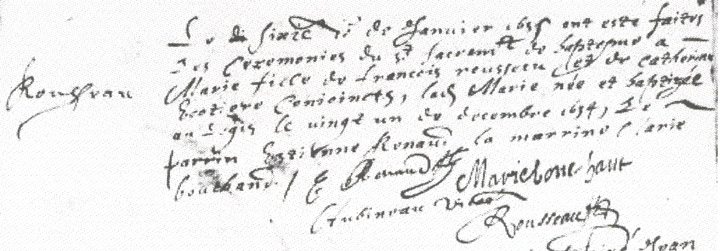 Rousseau
Le sixie jr de Janvier 1655 ont esté faites
Les Ceremonies du st sacremt de baptesme a
Marie fille de francois rousseau et de catherine
Conjoincts, lad Marie née et baptizée
au Logis le vingt un de decembre 1654, Le
parrin Estienne Renaud la marrine Marie
bouchaud / E Renaud Marie bouchaut
Rousseau